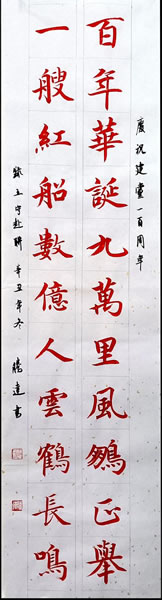 慶祝建黨一百周年
百年華誕九萬里風鵬正舉
一艘紅船數億人雲鶴長鳴
聯 辛丑年冬 騰達書